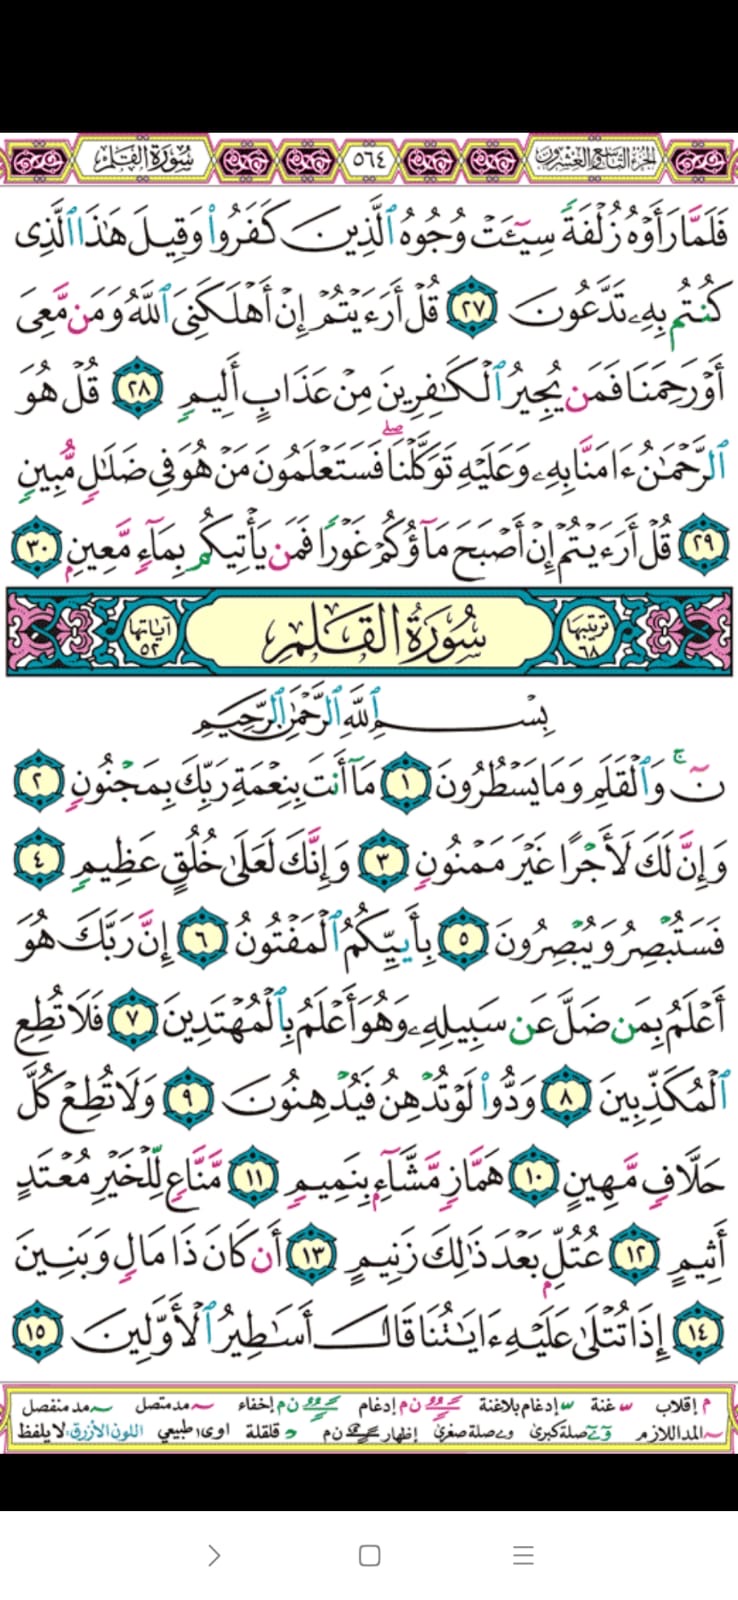 الجزء التاسع والعشرون ٥٦٤ سُورَةُ القَلَمِ
فَلَمَّا رَأَوۡهُ زُلۡفَةٗ سِيٓـَٔتۡ وُجُوهُ ٱلَّذِينَ كَفَرُواْ وَقِيلَ هَٰذَا ٱلَّذِي
كُنتُم بِهِۦ تَدَّعُونَ ٢٧ قُلۡ أَرَءَيۡتُمۡ إِنۡ أَهۡلَكَنِيَ ٱللَّهُ وَمَن مَّعِيَ
أَوۡ رَحِمَنَا فَمَن يُجِيرُ ٱلۡكَٰفِرِينَ مِنۡ عَذَابٍ أَلِيمٖ ٢٨ قُلۡ هُوَ
ٱلرَّحۡمَٰنُ ءَامَنَّا بِهِۦ وَعَلَيۡهِ تَوَكَّلۡنَاۖ فَسَتَعۡلَمُونَ مَنۡ هُوَ فِي ضَلَٰلٖ مُّبِينٖ
٢٩ قُلۡ أَرَءَيۡتُمۡ إِنۡ أَصۡبَحَ مَآؤُكُمۡ غَوۡرٗا فَمَن يَأۡتِيكُم بِمَآءٖ مَّعِينِۭ ٣٠
ترتيبها ٦٨ سُورَةُ القَلَمِ آياتها ٥٢
بِسۡمِ ٱللَّهِ ٱلرَّحۡمَٰنِ ٱلرَّحِيمِ
نٓۚ وَٱلۡقَلَمِ وَمَا يَسۡطُرُونَ ١ مَآ أَنتَ بِنِعۡمَةِ رَبِّكَ بِمَجۡنُونٖ ٢
وَإِنَّ لَكَ لَأَجۡرًا غَيۡرَ مَمۡنُونٖ ٣ وَإِنَّكَ لَعَلَىٰ خُلُقٍ عَظِيمٖ ٤
فَسَتُبۡصِرُ وَيُبۡصِرُونَ ٥ بِأَييِّكُمُ ٱلۡمَفۡتُونُ ٦ إِنَّ رَبَّكَ هُوَ
أَعۡلَمُ بِمَن ضَلَّ عَن سَبِيلِهِۦ وَهُوَ أَعۡلَمُ بِٱلۡمُهۡتَدِينَ ٧ فَلَا تُطِعِ
ٱلۡمُكَذِّبِينَ ٨ وَدُّواْ لَوۡ تُدۡهِنُ فَيُدۡهِنُونَ ٩ وَلَا تُطِعۡ كُلَّ
حَلَّافٖ مَّهِينٍ ١٠ هَمَّازٖ مَّشَّآءِۭ بِنَمِيمٖ ١١ مَّنَّاعٖ لِّلۡخَيۡرِ مُعۡتَدٍ
أَثِيمٍ ١٢ عُتُلِّۭ بَعۡدَ ذَٰلِكَ زَنِيمٍ ١٣ أَن كَانَ ذَا مَالٖ وَبَنِينَ
١٤ إِذَا تُتۡلَىٰ عَلَيۡهِ ءَايَٰتُنَا قَالَ أَسَٰطِيرُ ٱلۡأَوَّلِينَ ١٥
م إقلاب س غنة س إدغام بلاغنة ن م إدغام ن م إخفاء مد متصل مد منفصل
المد اللازم صلة كبرى وے صلة صغرى إظهار ن م د قلقلة اوى طبيعي اللون الأزرق: لا يلفظ